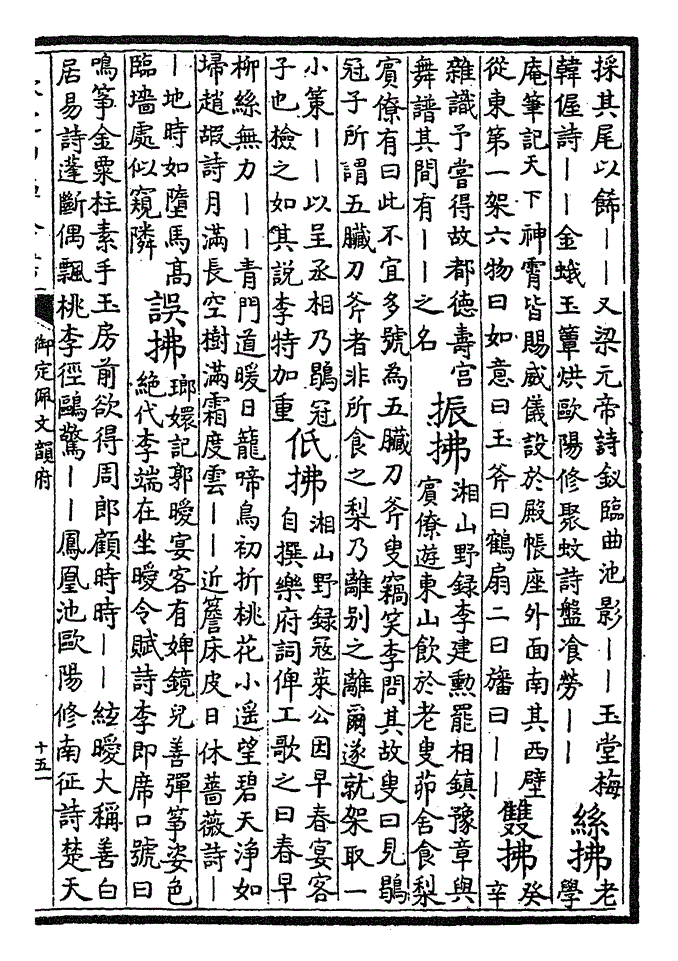 採其尾以飾——又梁元帝詩釵臨曲池影——玉堂梅
韓偓詩——金蛾玉簟烘歐陽修聚蚊詩盤飡勞——
絲拂
老
學
庵筆記天下神霄皆賜威儀設於殿帳座外面南其西壁
從東第一架六物曰如意曰玉斧曰鶴扇二曰旛曰——
雙拂
癸
辛
雜識予嘗得故都德壽宫
舞譜其間有——之名
振拂
湘山野録李建勲罷相鎮豫章與
賓僚遊東山飲於老叟茆舍食梨
賓僚有曰此不宜多號為五臟刀斧叟竊笑李問其故叟曰見鶡
冠子所謂五臟刀斧者非所食之梨乃離别之離爾遂就架取一
小策——以呈丞相乃鶡冠
子也檢之如其説李特加重
低拂
湘山野録寇萊公因早春宴客
自撰樂府詞俾工歌之曰春早
柳絲無力——青門道暖日籠啼鳥初折桃花小遥望碧天浄如
埽趙嘏詩月滿長空樹滿霜度雲——近簷床皮日休薔薇詩—
—地時如墮馬髙
臨墻處似窺隣
誤拂
瑯嬛記郭曖宴客有婢鏡兒善彈筝姿色
絶代李端在坐曖令賦詩李即席口號曰
鳴筝金粟柱素手玉房前欲得周郎顧時時——絃曖大稱善白
居易詩蓬斷偶飄桃李徑鷗驚——鳳凰池歐陽修南征詩楚天
御定佩文韻府
十五